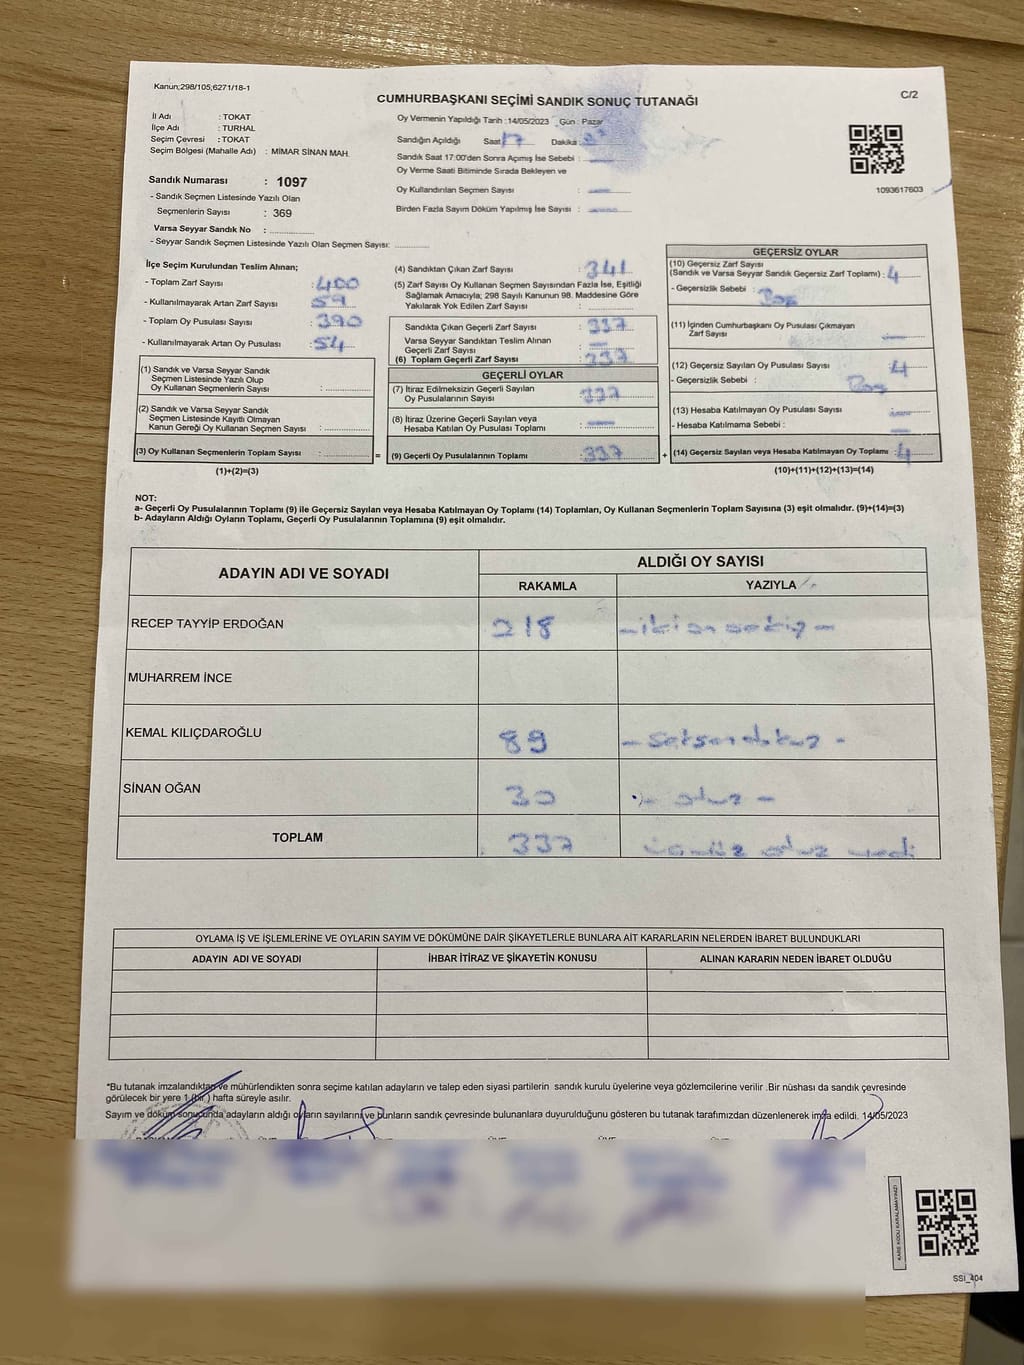 Kanun;298/105;6271/18-1
CUMHURBAŞKANI SEÇİMİ SANDIK SONUÇ TUTANAĞI
C/2
İl Adı : TOKAT
İlçe Adı : TURHAL
Seçim Çevresi : TOKAT
Seçim Bölgesi (Mahalle Adı) : MİMAR SİNAN MAH.
Sandık Numarası : 1097
- Sandık Seçmen Listesinde Yazılı Olan
Seçmenlerin Sayısı : 369
Varsa Seyyar Sandık No :
- Seyyar Sandık Seçmen Listesinde Yazılı Olan Seçmen Sayısı:
Oy Vermenin Yapıldığı Tarih :14/05/2023 Gün : Pazar
Sandığın Açıldığı Saat 17 Dakika :
Sandık Saat 17:00'den Sonra Açımış İse Sebebi :
Oy Verme Saati Bitiminde Sırada Bekleyen ve
Oy Kullandırılan Seçmen Sayısı :
Birden Fazla Sayım Döküm Yapılmış İse Sayısı :
1093617603
İlçe Seçim Kurulundan Teslim Alınan;
- Toplam Zarf Sayısı : 400
- Kullanılmayarak Artan Zarf Sayısı : 59
- Toplam Oy Pusulası Sayısı : 390
- Kullanılmayarak Artan Oy Pusulası : 54
(1) Sandık ve Varsa Seyyar Sandık
Seçmen Listesinde Yazılı Olup
Oy Kullanan Seçmenlerin Sayısı :
(2) Sandık ve Varsa Seyyar Sandık
Seçmen Listesinde Kayıtlı Olmayan
Kanun Gereği Oy Kullanan Seçmen Sayısı :
(3) Oy Kullanan Seçmenlerin Toplam Sayısı :
(1)+(2)=(3)
(4) Sandıktan Çıkan Zarf Sayısı : 341
(5) Zarf Sayısı Oy Kullanan Seçmen Sayısından Fazla İse, Eşitliği
Sağlamak Amacıyla; 298 Sayılı Kanunun 98. Maddesine Göre
Yakılarak Yok Edilen Zarf Sayısı :
Sandıkta Çıkan Geçerli Zarf Sayısı : 337
Varsa Seyyar Sandıktan Teslim Alınan
Geçerli Zarf Sayısı :
(6) Toplam Geçerli Zarf Sayısı : 337
GEÇERLİ OYLAR
(7) İtiraz Edilmeksizin Geçerli Sayılan
Oy Pusulalarının Sayısı : 337
(8) İtiraz Üzerine Geçerli Sayılan veya
Hesaba Katılan Oy Pusulası Toplamı :
= (9) Geçerli Oy Pusulalarının Toplamı : 337 +
GEÇERSİZ OYLAR
(10) Geçersiz Zarf Sayısı
(Sandık ve Varsa Seyyar Sandık Geçersiz Zarf Toplamı) : 4
- Geçersizlik Sebebi : Boş
(11) İçinden Cumhurbaşkanı Oy Pusulası Çıkmayan
Zarf Sayısı :
(12) Geçersiz Sayılan Oy Pusulası Sayısı : 4
- Geçersizlik Sebebi : Boş
(13) Hesaba Katılmayan Oy Pusulası Sayısı :
- Hesaba Katılmama Sebebi :
(14) Geçersiz Sayılan veya Hesaba Katılmayan Oy Toplamı : 4
(10)+(11)+(12)+(13)=(14)
NOT:
a- Geçerli Oy Pusulalarının Toplamı (9) ile Geçersiz Sayılan veya Hesaba Katılmayan Oy Toplamı (14) Toplamları, Oy Kullanan Seçmenlerin Toplam Sayısına (3) eşit olmalıdır. (9)+(14)=(3)
b- Adayların Aldığı Oyların Toplamı, Geçerli Oy Pusulalarının Toplamına (9) eşit olmalıdır.
ADAYIN ADI VE SOYADI ALDIĞI OY SAYISI
RAKAMLA YAZIYLA
RECEP TAYYİP ERDOĞAN 218 - iki on sekiz -
MUHARREM İNCE
KEMAL KILIÇDAROĞLU 89 - seksendokuz -
SİNAN OĞAN 30 - otuz -
TOPLAM 337 üçyüz otuz yedi
OYLAMA İŞ VE İŞLEMLERİNE VE OYLARIN SAYIM VE DÖKÜMÜNE DAİR ŞİKAYETLERLE BUNLARA AİT KARARLARIN NELERDEN İBARET BULUNDUKLARI
ADAYIN ADI VE SOYADI İHBAR İTİRAZ VE ŞİKAYETİN KONUSU ALINAN KARARIN NEDEN İBARET OLDUĞU
*Bu tutanak imzalandıktan ve mühürlendikten sonra seçime katılan adayların ve talep eden siyasi partilerin sandık kurulu üyelerine veya gözlemcilerine verilir .Bir nüshası da sandık çevresinde
görülecek bir yere 1 (bir) hafta süreyle asılır.
Sayım ve döküm sonucunda adayların aldığı oyların sayılarını ve bunların sandık çevresinde bulunanlara duyurulduğunu gösteren bu tutanak tarafımızdan düzenlenerek imza edildi. 14/05/2023
KARE KODU KARALAMAYINIZ!
SSI_404